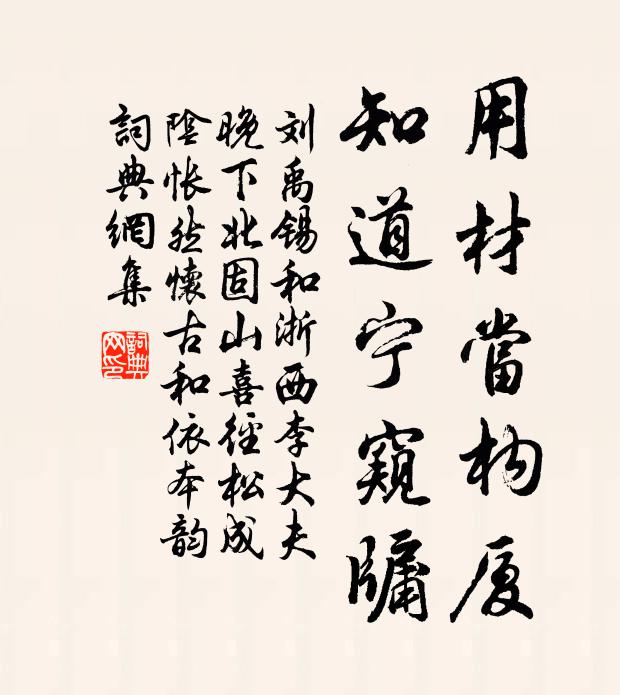 用材當构厦
知道宁窥牖
刘禹锡和浙西李大夫
晚下北固山喜徑松成
陰怅然懷古和依本韵
詞典網集
詞典网印